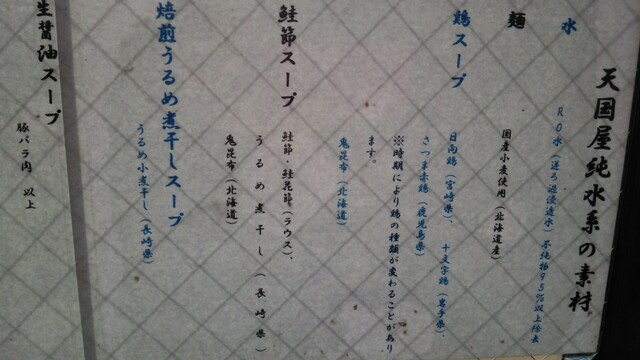 天国屋純水系の素材
水
RO水(逆ろ過浸透水)不純物95%以上除去
麺
国産小麦使用(北海道産)
鶏スープ
日向鶏(宮崎県)、十文字鶏(岩手県)、
さつま赤鶏(鹿児島県)
※時期により鶏の種類が変わることがあり
ます。
鬼昆布(北海道)
鮭節スープ
鮭節・鮭花節(ラウス)、
うるめ煮干し(長崎県)
鬼昆布(北海道)
焙煎うるめ煮干しスープ
うるめ小煮干し(長崎県)
生醤油スープ
豚バラ肉 以上